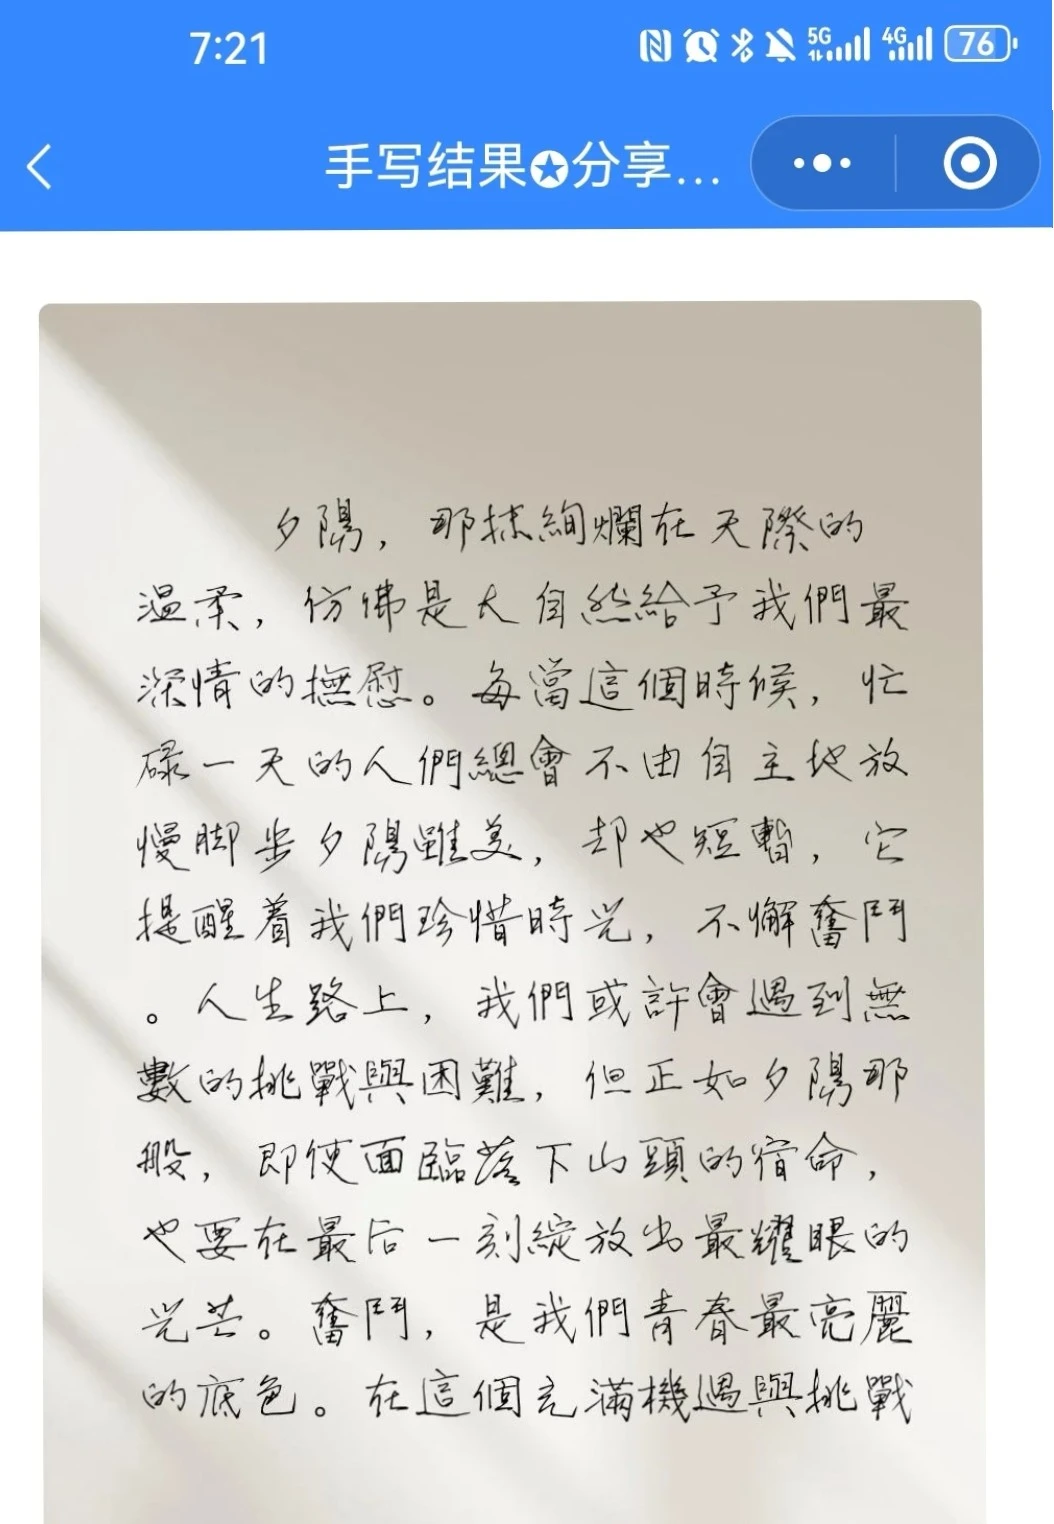 7:21
5G 4G 76
手写结果✪分享...
夕陽，那抹絢爛在天際的
温柔，仿佛是大自然給予我們最
深情的撫慰。每當這個時候，忙
碌一天的人們總會不由自主地放
慢脚步夕陽雖美，却也短暫，它
提醒着我們珍惜時光，不懈奮鬥
。人生路上，我們或許會遇到無
數的挑戰與困難，但正如夕陽那
般，即使面臨落下山頭的宿命，
也要在最后一刻綻放出最耀眼的
光芒。奮鬥，是我們青春最亮麗
的底色。在這個充滿機遇與挑戰